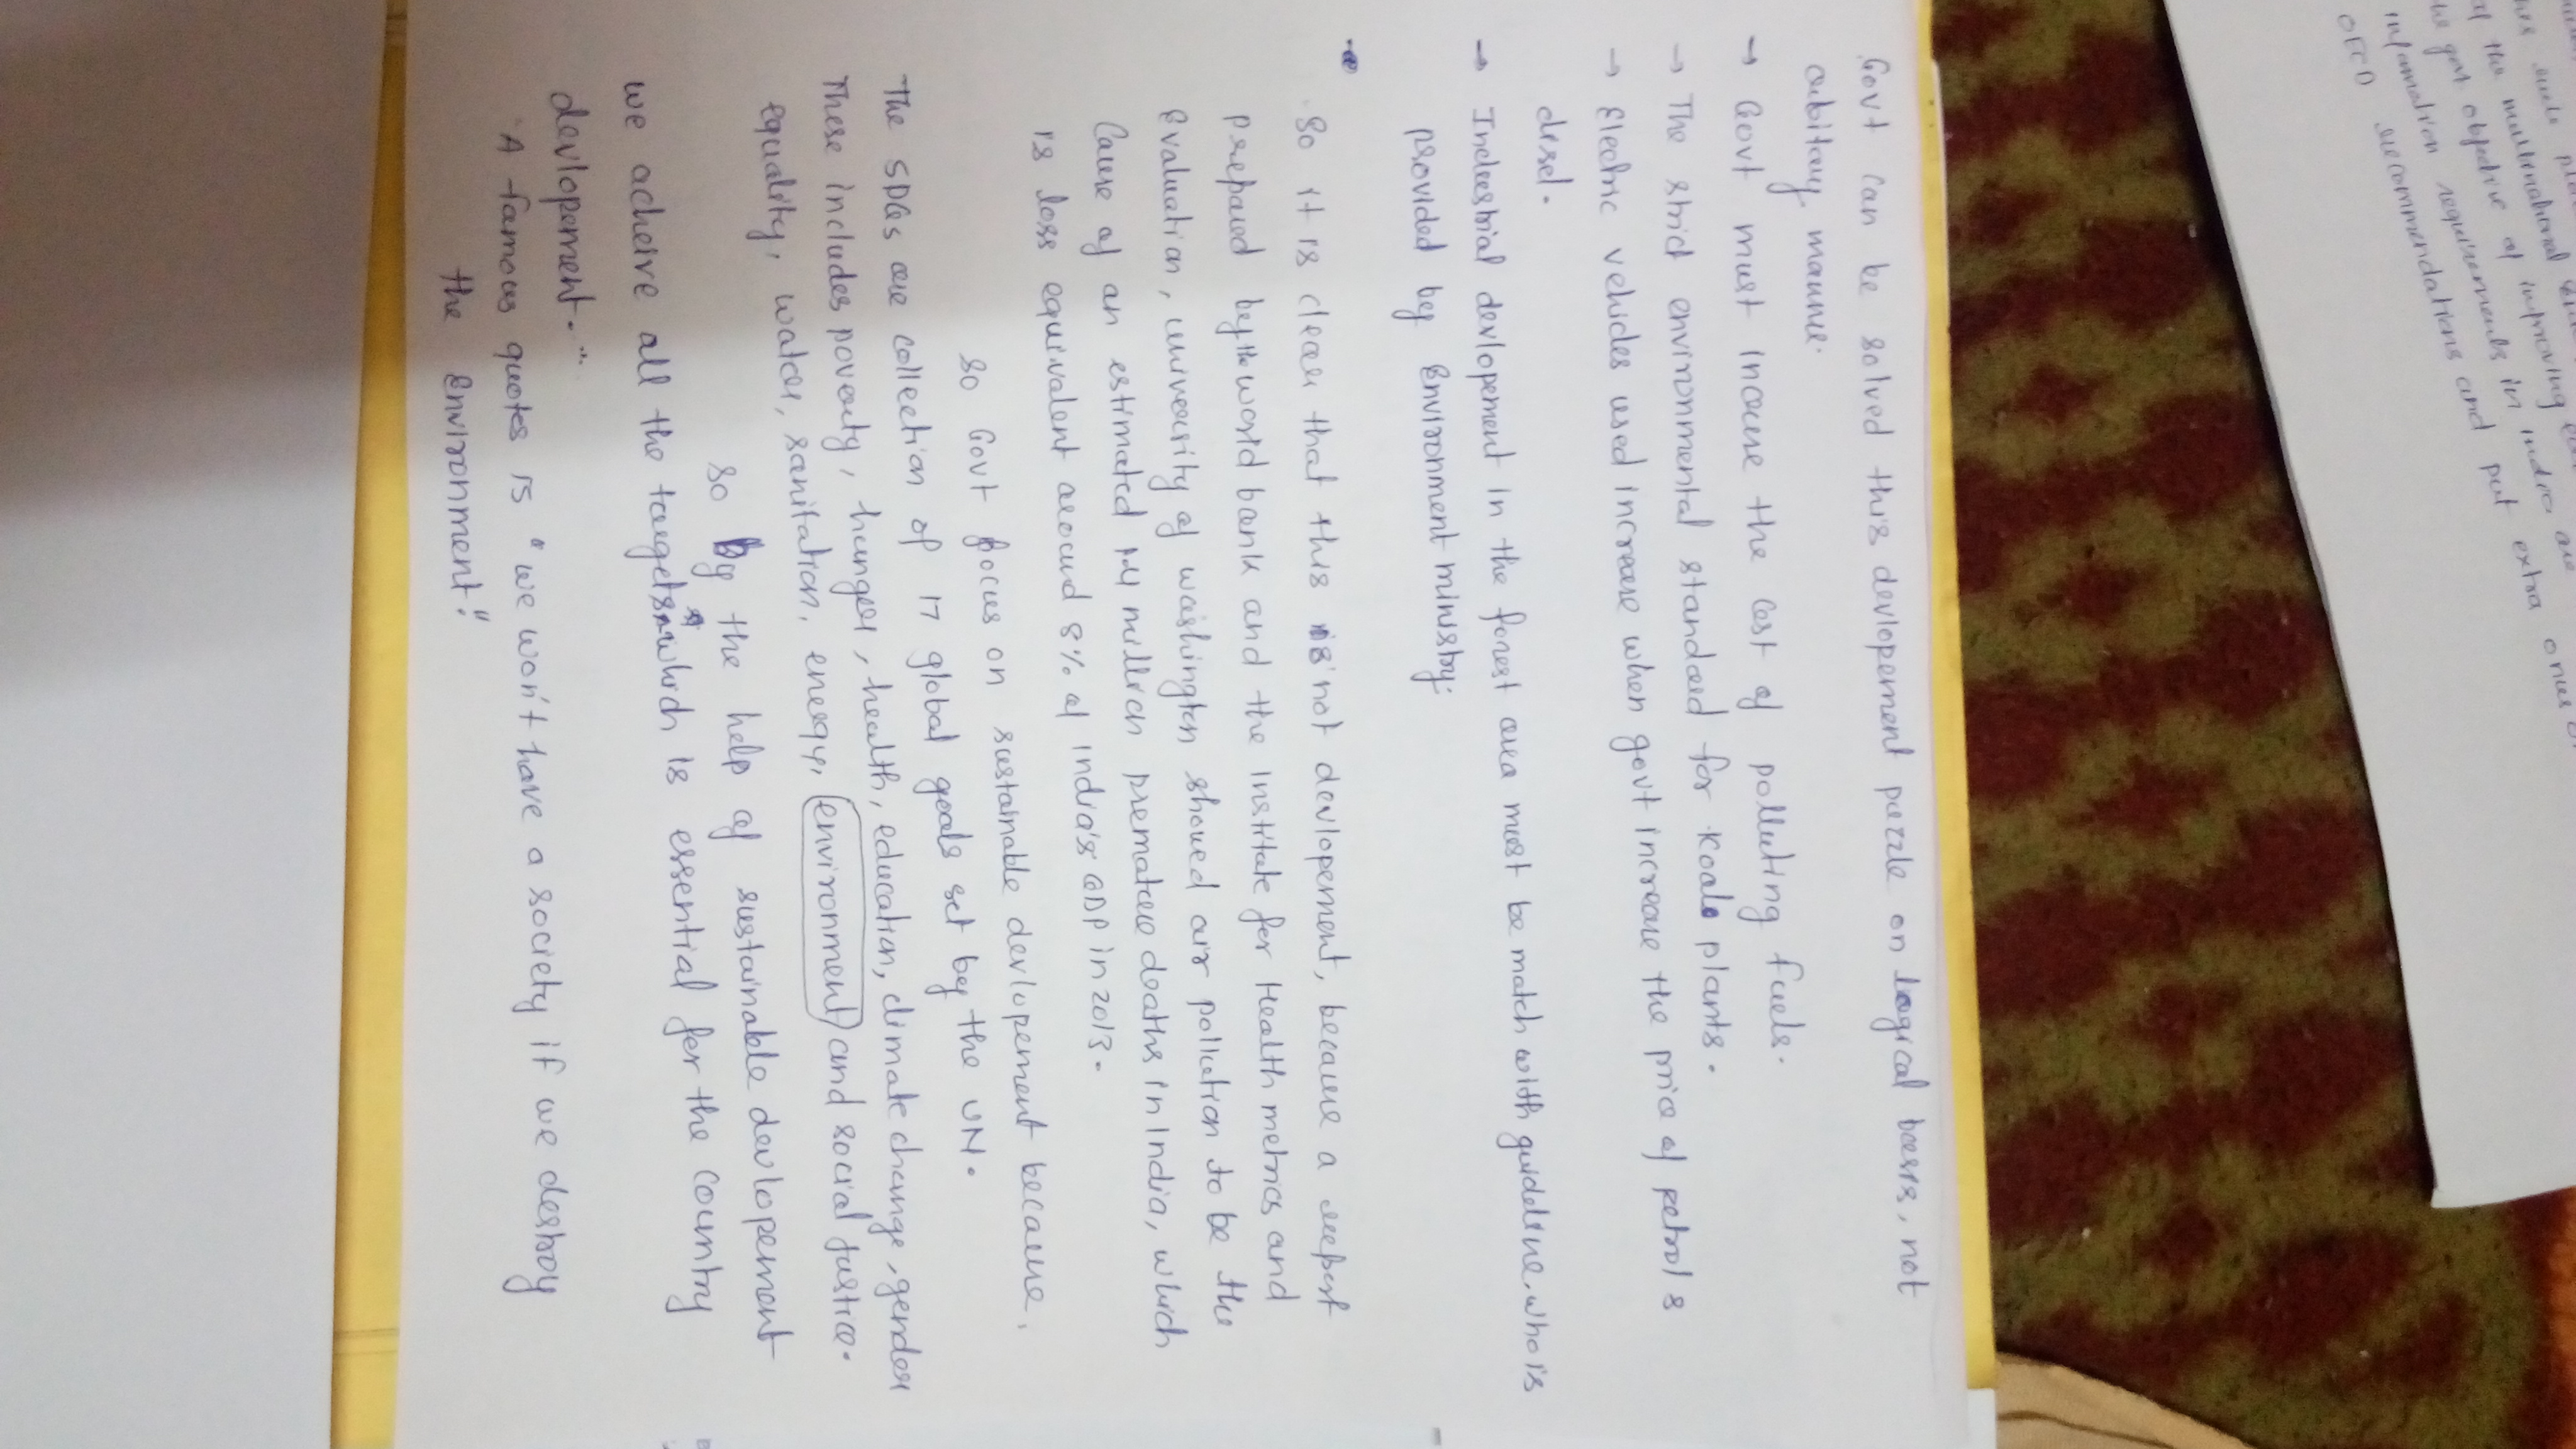 Govt can be solved this devlopement puzzle on logical basis, not
arbitary manner.
→ Govt must incane the cost of polluting fuels.
→ The strict environmental standard for koal plants.
→ Electric vehicles used increase when govt increase the price of petrol &
disel.
→ Industrial devlopement in the forest area must be match with guideline. who is
provided by Environment ministry.
• So it is clear that this is not devlopement, because a report
prepared by the world bank and the institute for Health metrics and
Evaluation, university of washington showed air pollution to be the
Cause of an estimated 1.4 million premature deaths in India, which
is loss equivalent around 8% of India's GDP in 2013.
So Govt focus on sustainable devlopement because,
The SDGs are collection of 17 global goals set by the UN.
These includes poverty, hunger, health, education, climate change, gender
equality, water, sanitation, energy, environment and social justice.
So By the help of sustainable devlopement
we acheive all the targets which is essential for the country
devlopement.
"A famous quotes is "we won't have a society if we destroy
the Environment."
of the multinational
the govt objective of improving
information requirements in India are
OECD recommendations and put extra onus